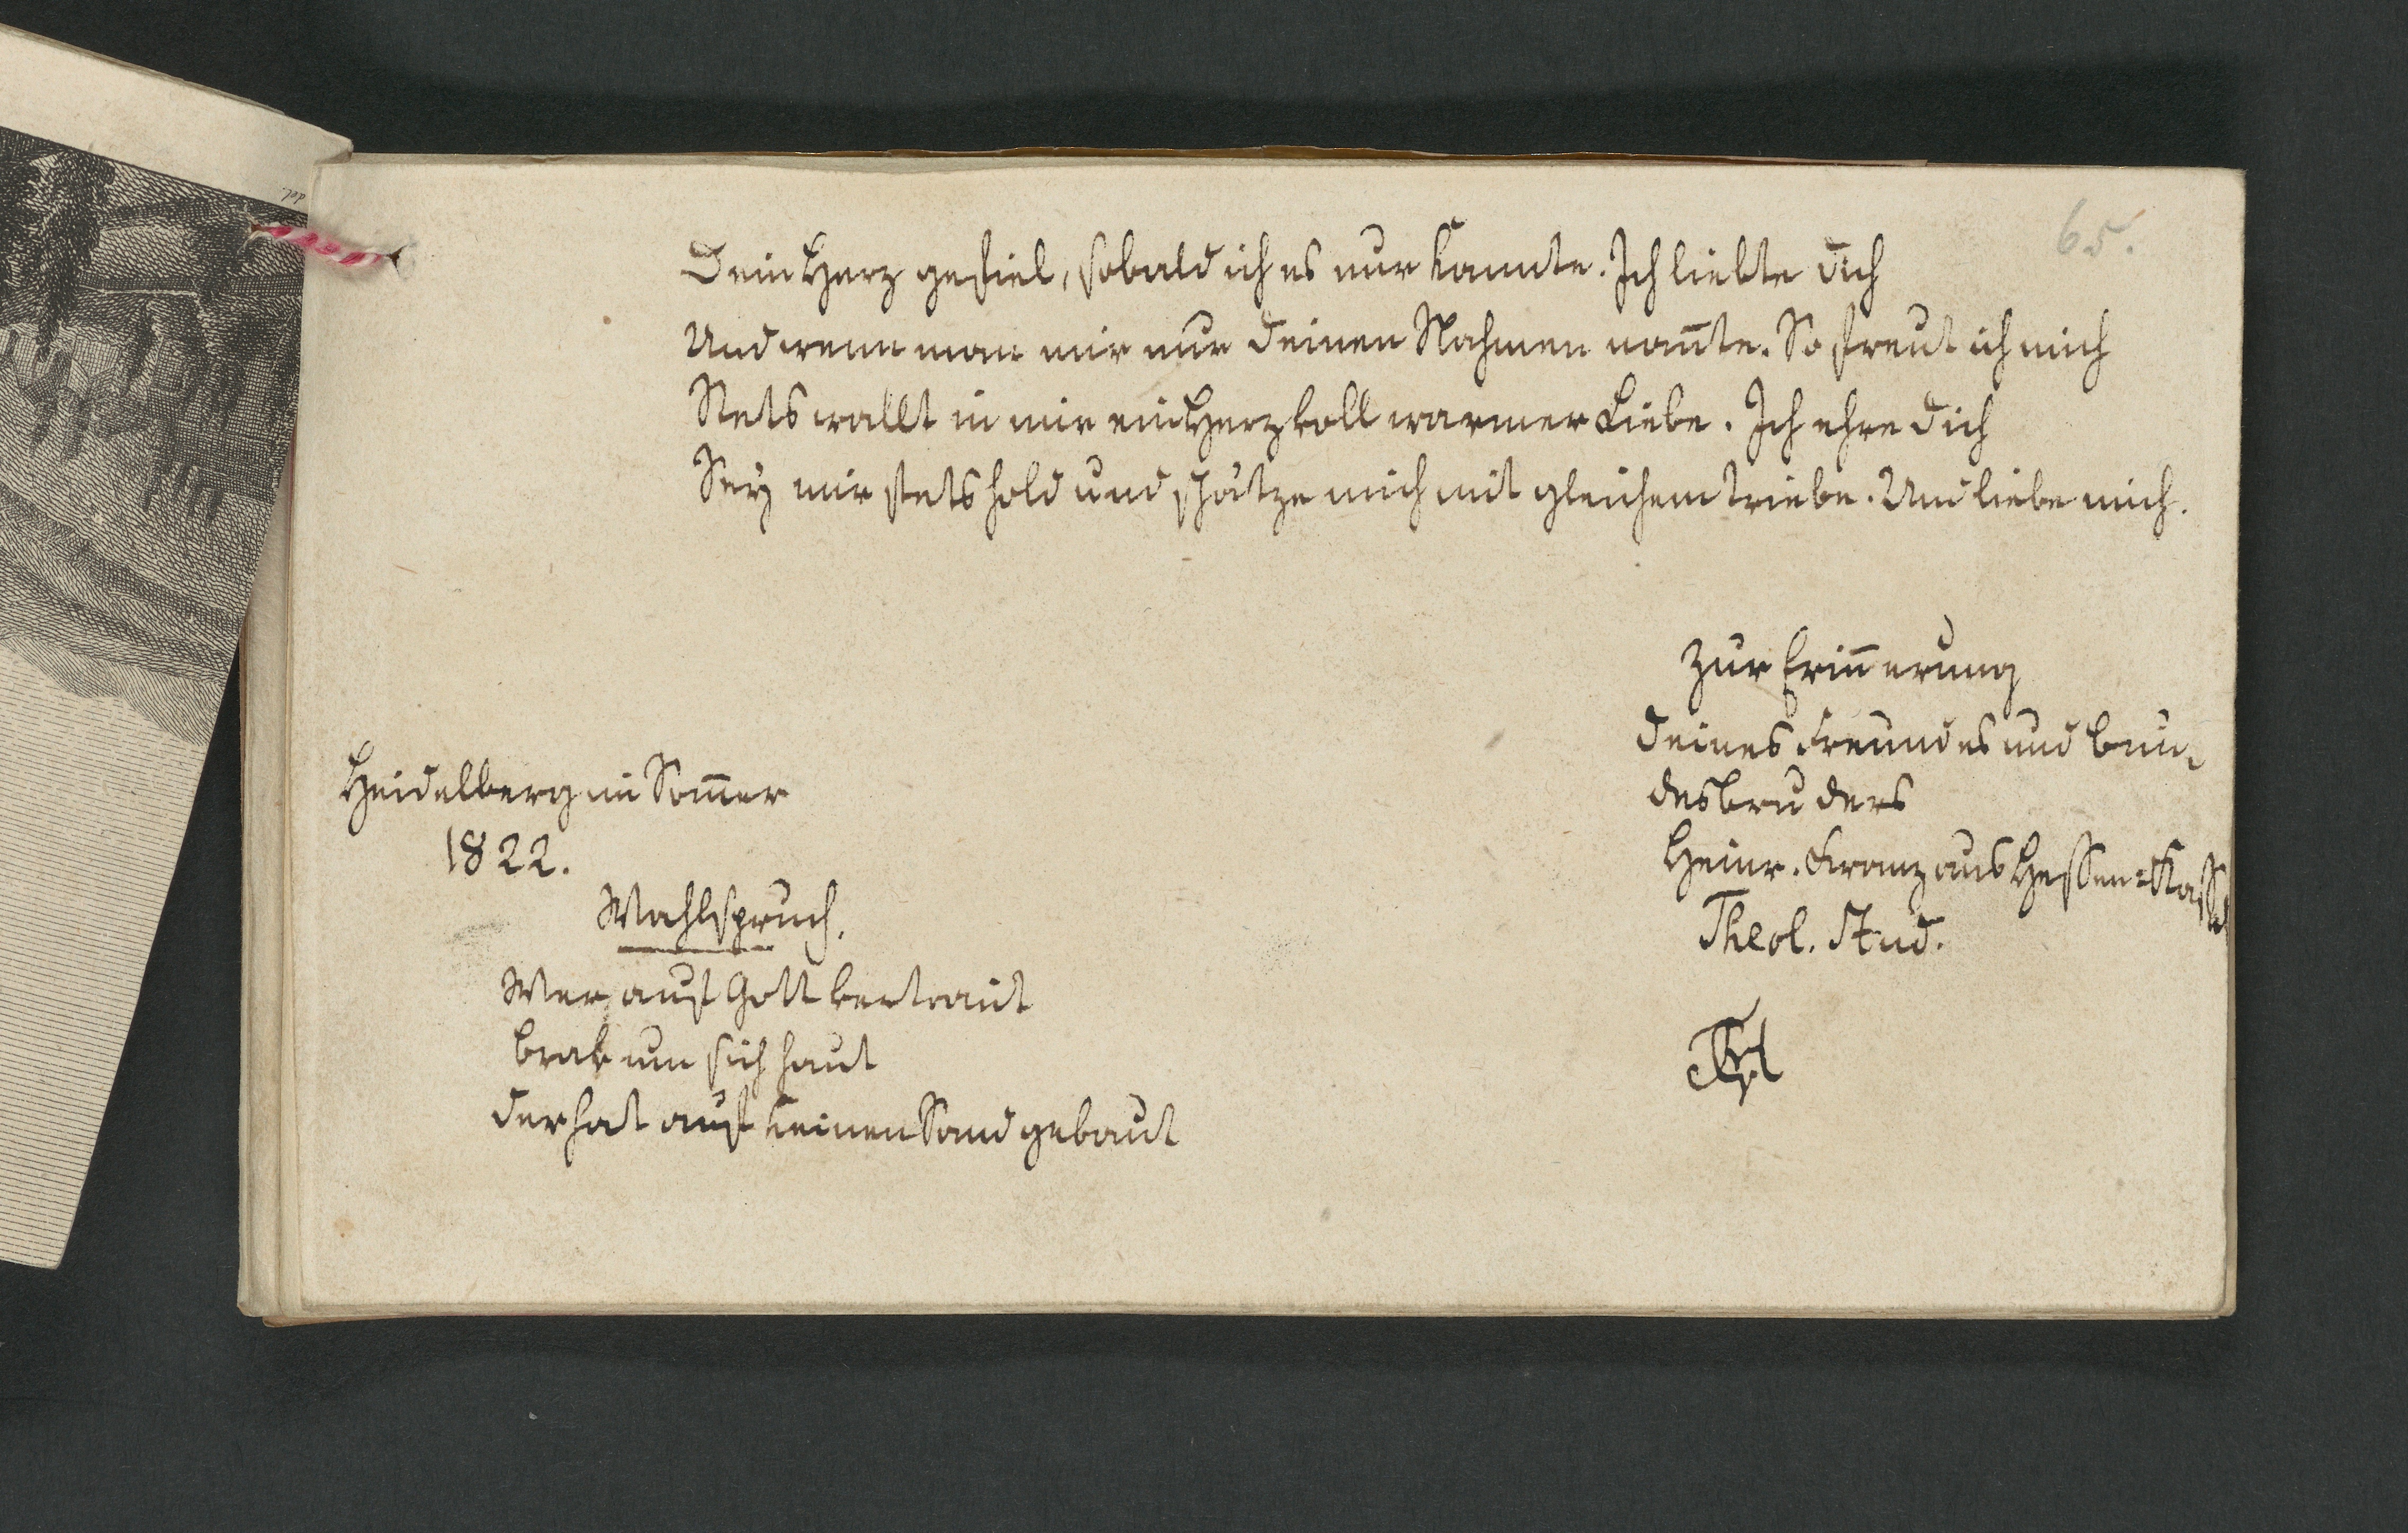 65.
Dein Herz gefiel, sobald ich es nur kannte. Ich liebte dich
Und wenn man mir nur deinen Nahmen nan̄te. So freut ich mich
Stets wallt in mir ein Herz voll warmer Liebe. Ich ehre dich
Sey mir stets hold und schätze mich mit gleichem Triebe. Und liebe mich.
Zur Erin̄erung
deines Freundes und Bun-
desbruders
Heinr. Franz aus Hessen-Kassel
Theol. Stud.
Heidelberg im Som̄er
1822.
Wahlspruch.
Wer auf Gott vertraut
brav um sich haut
der hat auf keinen Sand gebaut
del.